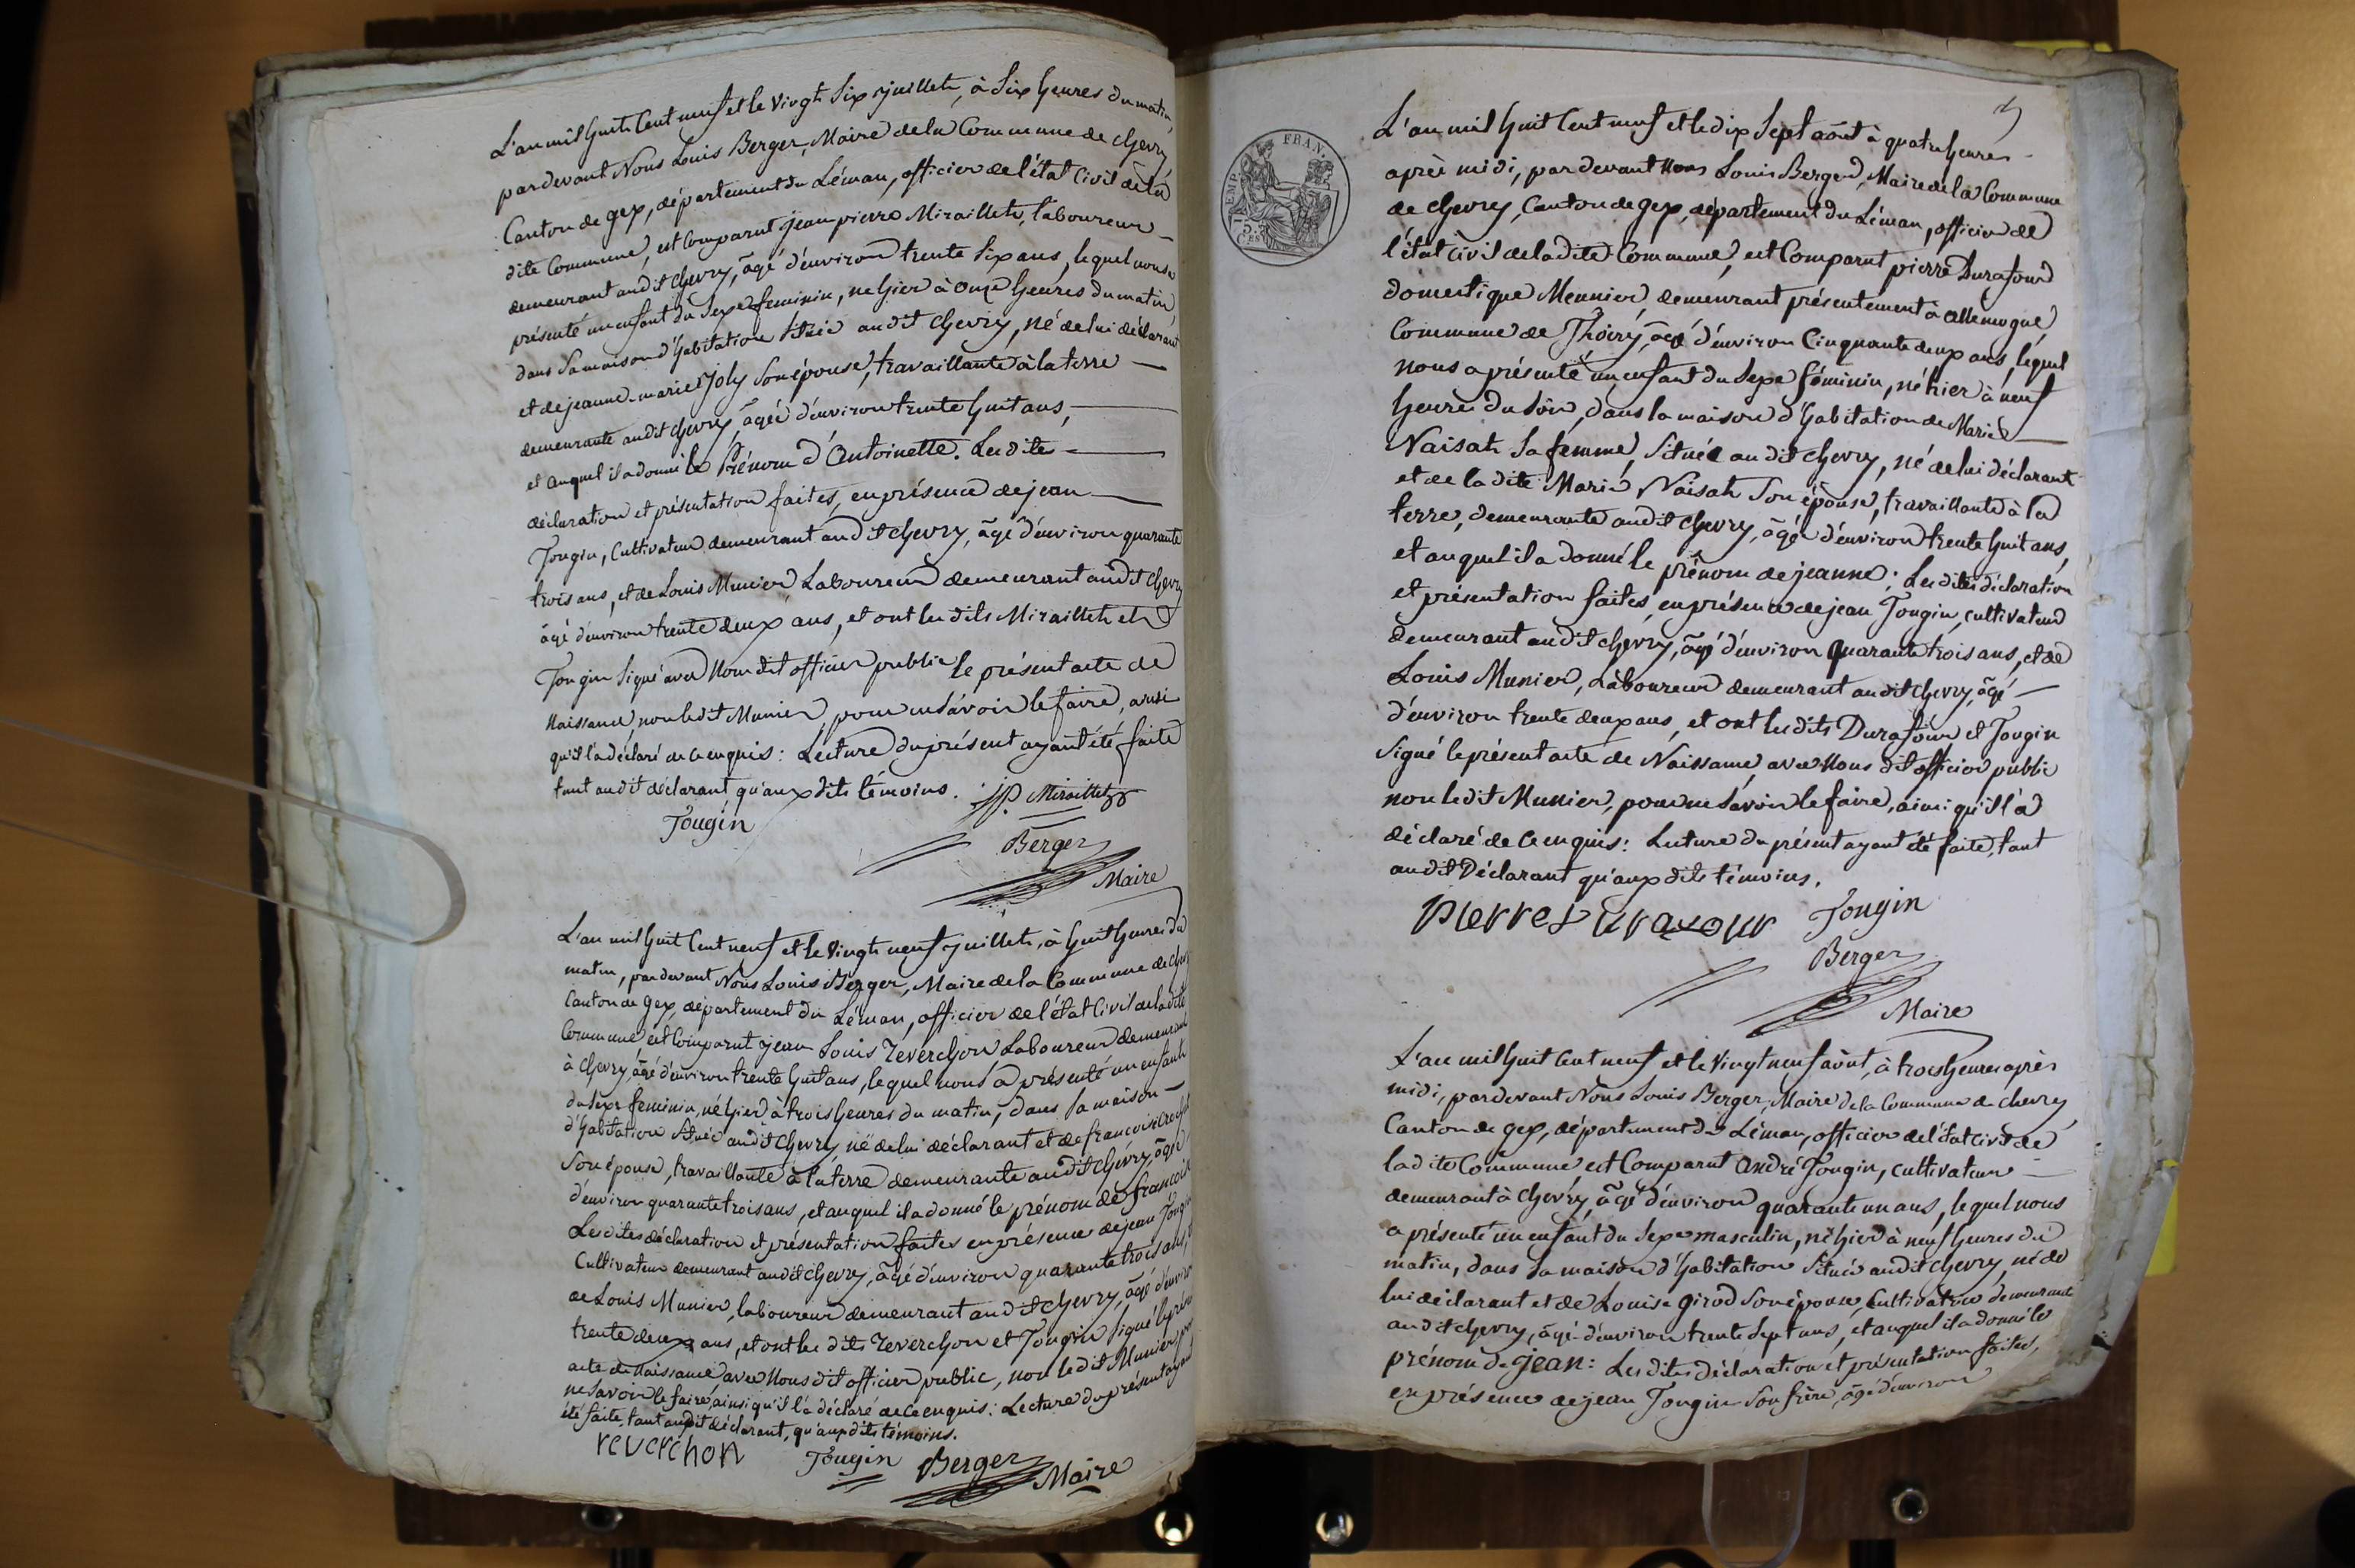 L'an mil huit cent neuf et le vingt six juillet, à six heures du matin,
pardevant Nous Louis Berger, Maire de la Commune de chevry
Canton de gex, département du Léman, officier de l'état Civil de la
dite Commune, est Comparut jean pierre Miraillet, laboureur
demeurant audit chevry, âgé d'environ trente six ans, lequel nous a
présenté un enfant du Sexe feminin, né hier à onze heures du matin,
dans Sa maison d'habitation Située audit chevry, né de lui déclarant
et de jeanne-marie Joly Son épouse, travaillante à la terre
demeurante audit chevry, âgée d'environ trente huit ans,
et auquel il a donné le Prénom d'Antoinette. Les dites
déclaration et présentation faites, en présence de jean
Tougin, Cultivateur demeurant audit chevry, âgé d'environ quarante
trois ans, et de Louis Munier Laboureur demeurant audit chevry
âgé d'environ trente deux ans, et ont les dits Miraillet et
Tougin Signé avec Nous dit officier public le présent acte de
Naissance, non ledit Munier, pour ne Savoir le faire, ainsi
qu'il l'a déclaré de ce enquis : Lecture du présent ayant été faite
tant audit déclarant qu'aux dits témoins.
JP. Miraillet
Tougin
Berger
Maire
L'an mil huit Cent neuf et le vingt neuf juillet, à huit heures du
matin, pardevant Nous Louis Berger, Maire de la Commune de chevry
Canton de gex, département du Léman, officier de l'état Civil de ladite
Commune est Comparut jean Louis Reverchon Laboureur demeurant
à chevry, âgé d'environ trente huit ans, lequel nous a présenté un enfant
du Sexe feminin, né hier à trois heures du matin, dans Sa maison
d'habitation Située audit chevry, né de lui déclarant et de francoise
Son épouse, travaillante à la terre demeurante audit chevry, âgée
d'environ quarante trois ans, et auquel il a donné le prénom de francoise
Les dites déclaration et présentation faites en présence de jean Tougin
Cultivateur demeurant audit chevry, âgé d'environ quarante trois ans, et
de Louis Munier, laboureur demeurant audit chevry, âgé d'environ
trente deux ans, et ont les dits Reverchon et Tougin Signé le présent
acte de Naissance avec Nous dit officier public, non ledit Munier pour
ne Savoir le faire, ainsi qu'il l'a déclaré de ce enquis : Lecture du présent ayant
été faite, tant audit déclarant, qu'aux dits témoins.
reverchon Tougin Berger Maire
FRAN.
EMP.
75
CES
L'an mil huit Cent neuf et le dix Sept août à quatre heures
après midi, par devant Nous Louis Berger, Maire de la Commune
de chevry, Canton de gex, département du Léman, officier de
l'état Civil de la dite Commune, est Comparut pierre Durafour
domestique Meunier, demeurant présentement à allemogne,
Commune de Thoiry, âgé d'environ Cinquante deux ans, lequel
nous a présenté un enfant du Sexe féminin, né hier à neuf
heures du Soir, dans la maison d'habitation de Marie
Naisat Sa femme, Située audit chevry, né de lui déclarant
et de la dite Marie Naisat Son épouse, travaillante à la
terre, demeurante audit chevry, âgée d'environ trente huit ans,
et auquel il a donné le prénom de jeanne ; Les dites déclaration
et présentation faites en présence de jean Tougin, cultivateur
demeurant audit chevry, âgé d'environ quarante trois ans, et de
Louis Munier, Laboureur demeurant audit chevry, âgé
d'environ trente deux ans, et ont les dits Durafour et Tougin
Signé le présent acte de Naissance, avec Nous dit officier public
non ledit Munier, pour ne Savoir le faire, ainsi qu'il l'a
déclaré de ce enquis : Lecture du présent ayant été faite, tant
audit Déclarant qu'aux dits témoins.
Pierre durafour Tougin
Berger
Maire
L'an mil huit Cent neuf, et le vingt neuf août, à trois heures après
midi, pardevant Nous Louis Berger, Maire de la Commune de chevry,
Canton de gex, département du Léman, officier de l'état civil de
la dite Commune est Comparut André Tougin, cultivateur
demeurant à chevry, âgé d'environ quarante un ans, lequel nous
a présenté un enfant du Sexe masculin, né hier à neuf heures du
matin, dans Sa maison d'habitation Située audit chevry, né de
lui déclarant et de Louise girod Son épouse, Cultivatrice demeurante
audit chevry, âgée d'environ trente Sept ans, et auquel il a donné le
prénom de jean : Les dites déclaration et présentation faites,
en présence de jean Tougin Son frère, âgé d'environ